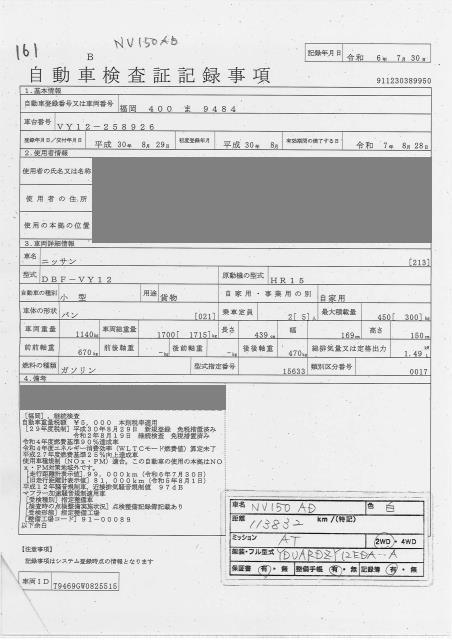 161
NV150 AD
B
記録年月日 令和 6年 7月 30日
自動車検査証記録事項
911230389950
1.基本情報
自動車登録番号又は車両番号 福岡 400 ま 9484
車台番号 VY12-258926
登録年月日/交付年月日 平成 30年 8月 29日 初度登録年月 平成 30年 8月 有効期間の満了する日 令和 7年 8月 28日
2.使用者情報
使用者の氏名又は名称
使用者の住所
使用の本拠の位置
3.車両詳細情報
車名 ニッサン [213]
型式 DBF-VY12 原動機の型式 HR15
自動車の種別 小型 用途 貨物 自家用・事業用の別 自家用
車体の形状 バン [021] 乗車定員 2[ 5]人 最大積載量 450[ 300]kg
車両重量 1140kg 車両総重量 1700[ 1715]kg 長さ 439cm 幅 169cm 高さ 150cm
前前軸重 670kg 前後軸重 -kg 後前軸重 -kg 後後軸重 470kg 総排気量又は定格出力 1.49 L
燃料の種類 ガソリン 型式指定番号 15633 類別区分番号 0017
4.備考
[福岡],継続検査
自動車重量税額 ¥5,000 本則税率適用
[29年度税制]平成30年8月29日 新規登録 免税措置済み
令和2年8月19日 継続検査 免税措置済み
令和4年度燃費基準90%達成車
令和4年度エネルギー消費効率(WLTCモード燃費値)算定未了
平成27年度燃費基準25%向上達成車
使用車種規制(NOx・PM)適合、この自動車の使用の本拠はNOx・PM対策地域外です。
[走行距離計表示値]99,000km(令和6年7月30日)
[旧走行距離計表示値]81,000km(令和5年8月1日)
平成12年騒音規制車、近接排気騒音規制値 97dB
マフラー加速騒音規制適用車
[受検種別]指定整備車
[検査時の点検整備実施状況]点検整備記録簿記載あり
[受検形態]指定整備工場
[整備工場コード]91-00089
以下余白
車名 NV150 AD 色 白
距離 113832 km/(特記)
ミッション AT 2WD・4WD
個装・フル型式
保証書 有・無 整備手帳 有・無 記録簿 有・無
[注意事項]
記録事項はシステム登録時点の情報となります
車両ID T9469GW0825515